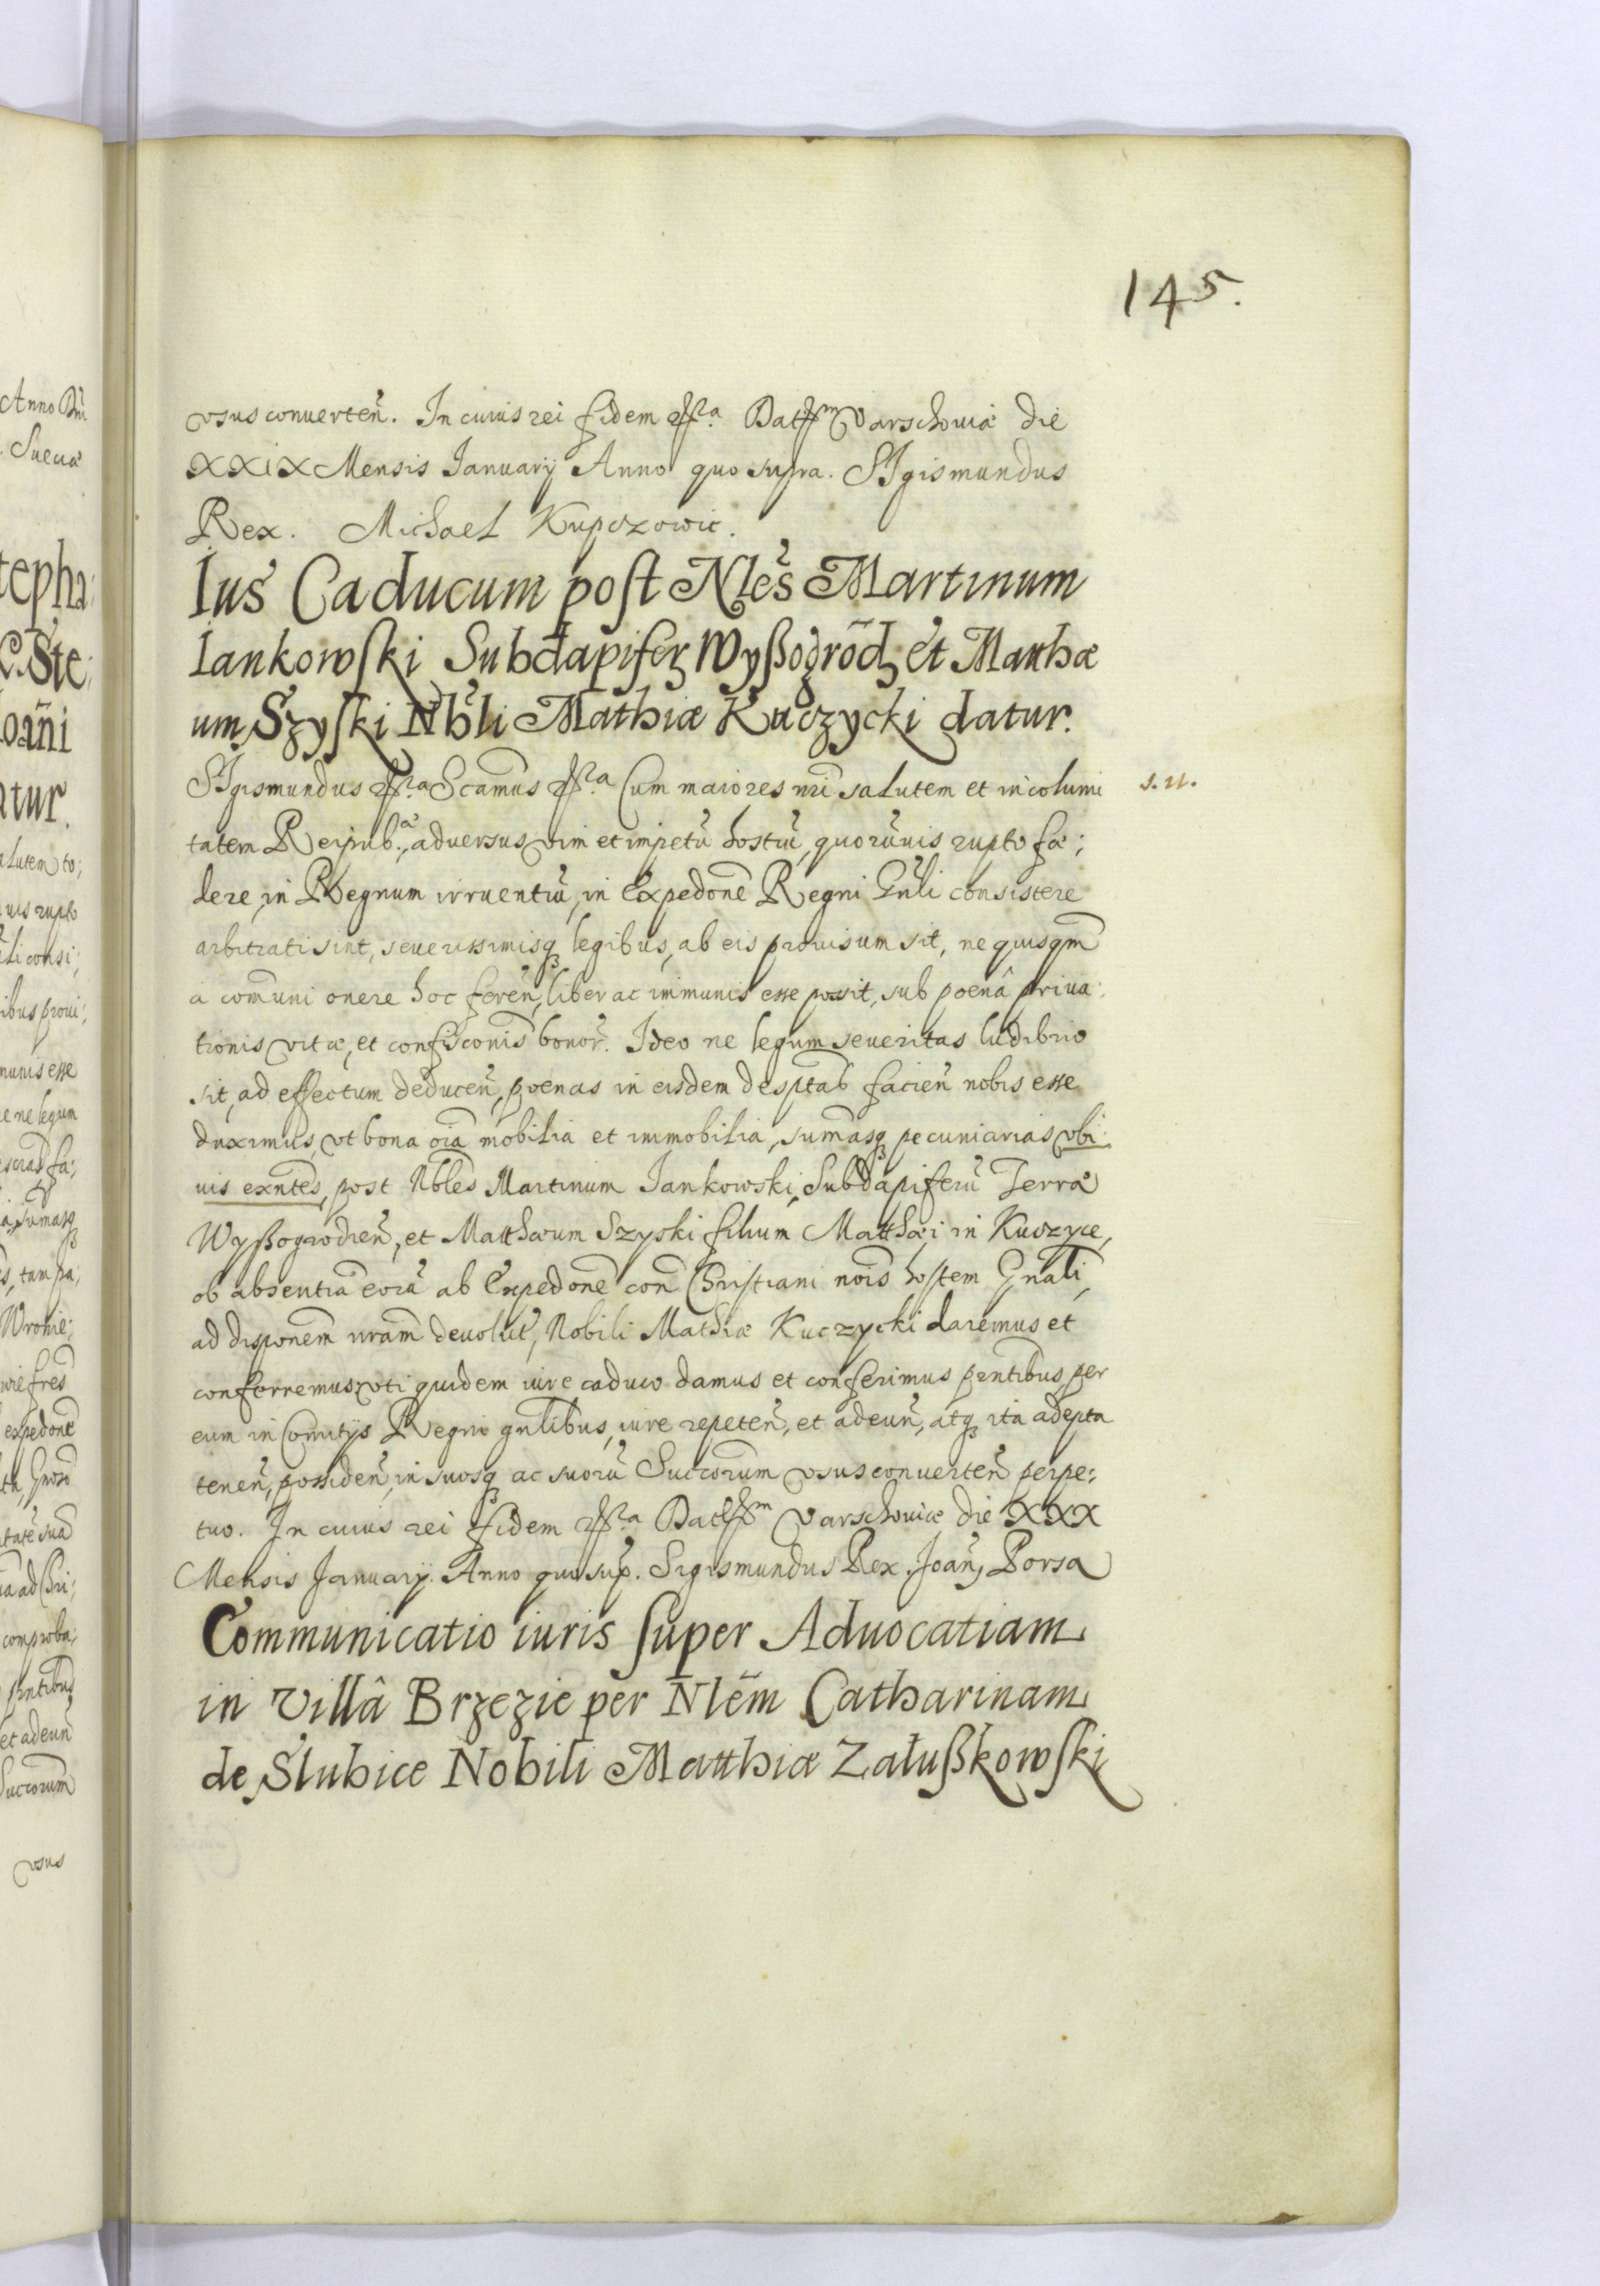 145.
vsus conuerten̄. In cuius rei fidem Varschouiæ die
XXIX Mensis Januarij Anno quo supra. SIgismundus
Rex. Michael Kupczowic.
Ius Caducum post Nlẽs Martinum
Iankowski Subdapifeꝝ Wyßogrõdꝫ et Matthæ
um Szyski Nbli Mathiæ Kuczycki datur.
SIgismundus Scāmus Cum maiores nr̄i salutem et incolumi
s. n.
tatem Reipub.æ, aduersus vim et impetū hostiū, quorūuis rupto fœ:
dere, in Regnum irruentiū, in Expedōne Regni Gn̄li consistere
arbitrati sint, seuerissimisqꝫ legibus, ab eis prouisum sit, ne quisqm̄
a com̄uni onere hoc feren̄, liber ac immunis esse possit, sub poenâ priua:
tionis vitæ, et confiscōnis bonor̄. Ideo ne legum seueritas ludibrio
sit, ad effectum deducen̄, poenas in eisdem faciēn nobis esse
duximus, vt bona oīa mobilia et immobilia, sum̄asqꝫ pecuniarias vbi:
uis exn̄tes, post Nbles Martinum Iankowski, Subdapiferū Terræ
Wyßogrodien̄, et Matthæum Szyski filium Matthæi in Kuczyce,
ob absentiā eorū ab Expedōne con̄ Christiani nois hostem Gnali,
ad disponem nram deuolut̄, Nobili Mathiæ Kuczycki daremus et
conferremus, vti quidem iure caduco damus et conferimus pn̄tibus, per
eum in Comitijs Regni gn̄libus, iure repeten̄, et adeun̄, atqꝫ ita adepta
tenen̄, possiden̄, in suosqꝫ ac suorū Succorum vsus conuerten̄ perpe:
tuo. In cuius rei fidem Varschouiæ die XXX
Mensis Januarij. Anno quo sup. Sigismundus Rex. Joan̄ Borsa
Communicatio iuris super Aduocatiam
in villâ Brzezie per Nlẽm Catharinam
de Slubice Nobili Matthiæ Załußkowski